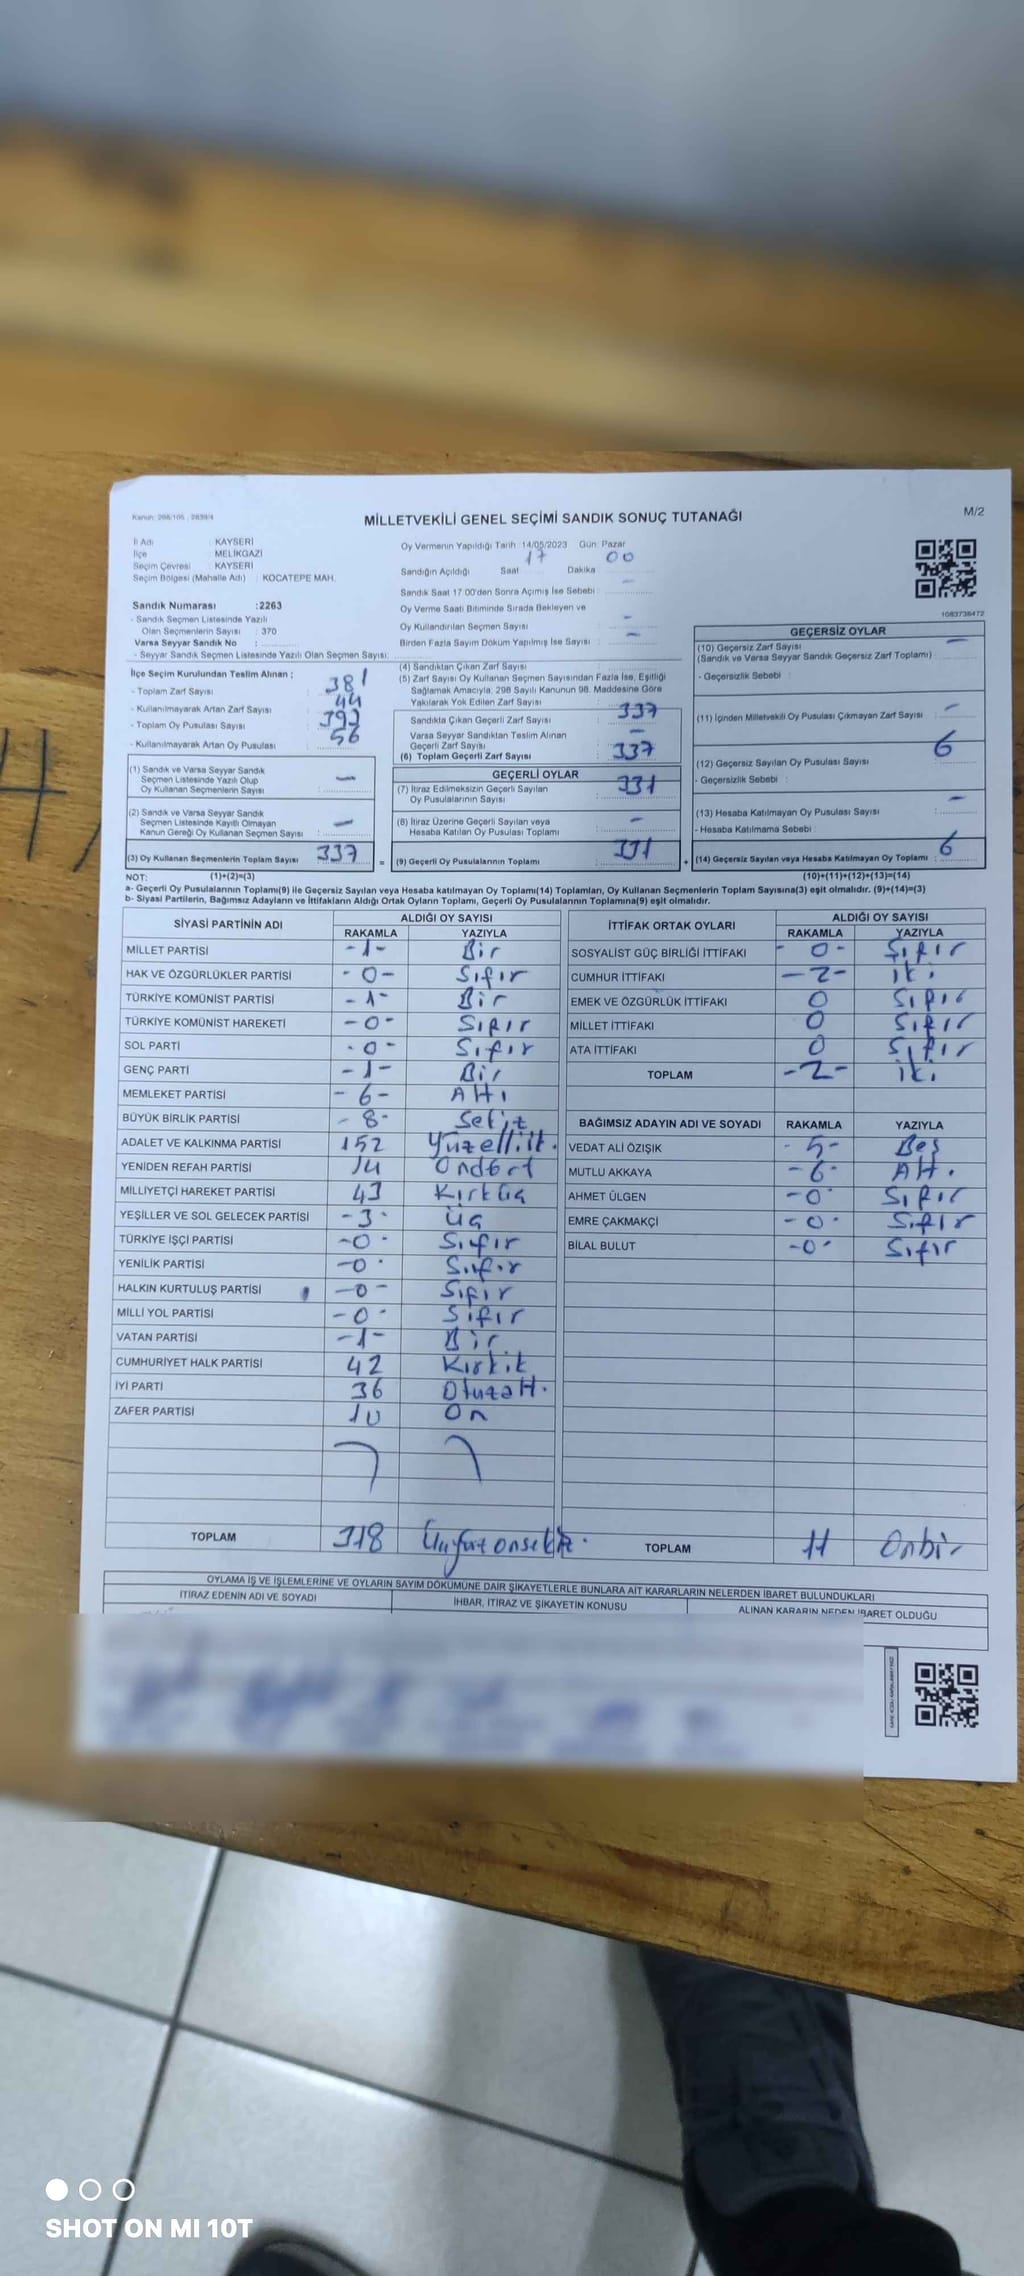 Kanun: 298/105 ; 2839/4
MİLLETVEKİLİ GENEL SEÇİMİ SANDIK SONUÇ TUTANAĞI
M/2
İl Adı : KAYSERİ
İlçe : MELİKGAZİ
Seçim Çevresi : KAYSERİ
Seçim Bölgesi (Mahalle Adı) : KOCATEPE MAH.
Sandık Numarası :2263
- Sandık Seçmen Listesinde Yazılı
Olan Seçmenlerin Sayısı : 370
Varsa Seyyar Sandık No :
- Seyyar Sandık Seçmen Listesinde Yazılı Olan Seçmen Sayısı:
Oy Vermenin Yapıldığı Tarih 14/05/2023 Gün: Pazar
Sandığın Açıldığı Saat 17 Dakika 00
Sandık Saat 17.00'den Sonra Açımış İse Sebebi : -
Oy Verme Saati Bitiminde Sırada Bekleyen ve
Oy Kullandırılan Seçmen Sayısı : -
Birden Fazla Sayım Döküm Yapılmış İse Sayısı : -
1083738472
İlçe Seçim Kurulundan Teslim Alınan ;
- Toplam Zarf Sayısı : 381
- Kullanılmayarak Artan Zarf Sayısı : 44
- Toplam Oy Pusulası Sayısı : 392
- Kullanılmayarak Artan Oy Pusulası : 56
(1) Sandık ve Varsa Seyyar Sandık
Seçmen Listesinde Yazılı Olup
Oy Kullanan Seçmenlerin Sayısı : -
(2) Sandık ve Varsa Seyyar Sandık
Seçmen Listesinde Kayıtlı Olmayan
Kanun Gereği Oy Kullanan Seçmen Sayısı : -
(3) Oy Kullanan Seçmenlerin Toplam Sayısı : 337 =
(4) Sandıktan Çıkan Zarf Sayısı :
(5) Zarf Sayısı Oy Kullanan Seçmen Sayısından Fazla İse, Eşitliği
Sağlamak Amacıyla, 298 Sayılı Kanunun 98. Maddesine Göre
Yakılarak Yok Edilen Zarf Sayısı :
Sandıkta Çıkan Geçerli Zarf Sayısı : 337
Varsa Seyyar Sandıktan Teslim Alınan
Geçerli Zarf Sayısı : -
(6) Toplam Geçerli Zarf Sayısı : 337
GEÇERLİ OYLAR
(7) İtiraz Edilmeksizin Geçerli Sayılan
Oy Pusulalarının Sayısı : 331
(8) İtiraz Üzerine Geçerli Sayılan veya
Hesaba Katılan Oy Pusulası Toplamı : -
(9) Geçerli Oy Pusulalarının Toplamı : 331 +
GEÇERSİZ OYLAR
(10) Geçersiz Zarf Sayısı -
(Sandık ve Varsa Seyyar Sandık Geçersiz Zarf Toplamı) :
- Geçersizlik Sebebi :
(11) İçinden Milletvekili Oy Pusulası Çıkmayan Zarf Sayısı : -
(12) Geçersiz Sayılan Oy Pusulası Sayısı : 6
- Geçersizlik Sebebi :
(13) Hesaba Katılmayan Oy Pusulası Sayısı : -
- Hesaba Katılmama Sebebi :
(14) Geçersiz Sayılan veya Hesaba Katılmayan Oy Toplamı : 6
NOT: (1)+(2)=(3) (10)+(11)+(12)+(13)=(14)
a- Geçerli Oy Pusulalarının Toplamı(9) ile Geçersiz Sayılan veya Hesaba katılmayan Oy Toplamı(14) Toplamları, Oy Kullanan Seçmenlerin Toplam Sayısına(3) eşit olmalıdır. (9)+(14)=(3)
b- Siyasi Partilerin, Bağımsız Adayların ve İttifakların Aldığı Ortak Oyların Toplamı, Geçerli Oy Pusulalarının Toplamına(9) eşit olmalıdır.
SİYASİ PARTİNİN ADI ALDIĞI OY SAYISI
RAKAMLA YAZIYLA
MİLLET PARTİSİ -1- Bir
HAK VE ÖZGÜRLÜKLER PARTİSİ -0- Sıfır
TÜRKİYE KOMÜNİST PARTİSİ -1- Bir
TÜRKİYE KOMÜNİST HAREKETİ -0- Sıfır
SOL PARTİ -0- Sıfır
GENÇ PARTİ -1- Bir
MEMLEKET PARTİSİ -6- Altı
BÜYÜK BİRLİK PARTİSİ -8- Sekiz
ADALET VE KALKINMA PARTİSİ 152 Yüzelliik.
YENİDEN REFAH PARTİSİ 14 Ondört
MİLLİYETÇİ HAREKET PARTİSİ 43 Kırküç
YEŞİLLER VE SOL GELECEK PARTİSİ -3- Üç
TÜRKİYE İŞÇİ PARTİSİ -0- Sıfır
YENİLİK PARTİSİ -0- Sıfır
HALKIN KURTULUŞ PARTİSİ -0- Sıfır
MİLLİ YOL PARTİSİ -0- Sıfır
VATAN PARTİSİ -1- Bir
CUMHURİYET HALK PARTİSİ 42 Kırkik
İYİ PARTİ 36 Otuzalt.
ZAFER PARTİSİ 10 On
TOPLAM 318 Üçyüzonsekiz.
İTTİFAK ORTAK OYLARI ALDIĞI OY SAYISI
RAKAMLA YAZIYLA
SOSYALİST GÜÇ BİRLİĞİ İTTİFAKI -0- Sıfır
CUMHUR İTTİFAKI -2- iki
EMEK VE ÖZGÜRLÜK İTTİFAKI 0 Sıfır
MİLLET İTTİFAKI 0 Sıfır
ATA İTTİFAKI 0 Sıfır
TOPLAM -2- iki
BAĞIMSIZ ADAYIN ADI VE SOYADI RAKAMLA YAZIYLA
VEDAT ALİ ÖZIŞIK -5- Beş
MUTLU AKKAYA -6- Alt.
AHMET ÜLGEN -0- Sıfır
EMRE ÇAKMAKÇİ -0- Sıfır
BİLAL BULUT -0- Sıfır
TOPLAM 11 Onbir
OYLAMA İŞ VE İŞLEMLERİNE VE OYLARIN SAYIM DÖKÜMÜNE DAİR ŞİKAYETLERLE BUNLARA AİT KARARLARIN NELERDEN İBARET BULUNDUKLARI
İTİRAZ EDENİN ADI VE SOYADI İHBAR, İTİRAZ VE ŞİKAYETİN KONUSU ALINAN KARARIN NEDEN İBARET OLDUĞU
SHOT ON MI 10T